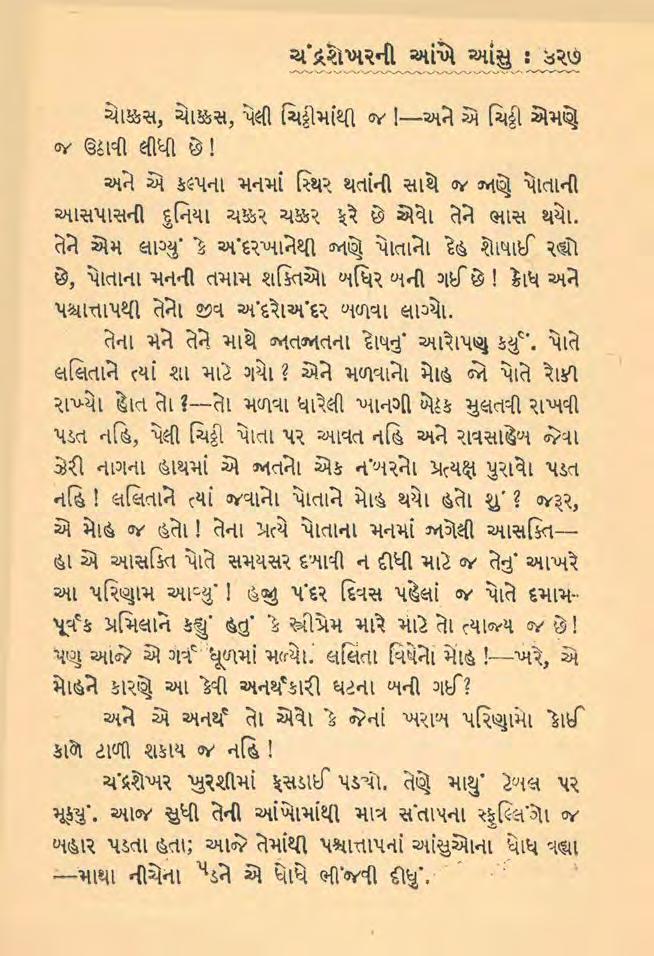 ચંદ્રશેખરની આંખે આંસુ : ૬૨૭
ચોક્કસ, ચોક્કસ, પેલી ચિઠ્ઠીમાંથી જ !—અને એ ચિઠ્ઠી એમણે
જ ઉઠાવી લીધી છે !
અને એ કલ્પના મનમાં સ્થિર થતાંની સાથે જ જાણે પોતાની
આસપાસની દુનિયા ચક્કર ચક્કર ફરે છે એવો તેને ભાસ થયો.
તેને એમ લાગ્યું કે અંદરખાનેથી જાણે પોતાનો દેહ શોષાઈ રહ્યો
છે, પોતાના મનની તમામ શક્તિઓ બધિર બની ગઈ છે ! ક્રોધ અને
પશ્ચાત્તાપથી તેનો જીવ અંદરોઅંદર બળવા લાગ્યો.
તેના મને તેને માથે જાતજાતના દોષનું આરોપણ કર્યું. પોતે
લલિતાને ત્યાં શા માટે ગયો ? એને મળવાનો મોહ જો પોતે રોકી
રાખ્યો હોત તો ?—તો મળવા ધારેલી ખાનગી બેઠક મુલતવી રાખવી
પડત નહિ, પેલી ચિઠ્ઠી પોતા પર આવત નહિ અને રાવસાહેબ જેવા
ઝેરી નાગના હાથમાં એ જાતનો એક નંબરનો પ્રત્યક્ષ પુરાવો પડત
નહિ ! લલિતાને ત્યાં જવાનો પોતાને મોહ થયો હતો શું ? જરૂર,
એ મોહ જ હતો ! તેના પ્રત્યે પોતાના મનમાં જાગેલી આસક્તિ—
હા એ આસક્તિ પોતે સમયસર દબાવી ન દીધી માટે જ તેનું આખરે
આ પરિણામ આવ્યું ! હજી પંદર દિવસ પહેલાં જ પોતે દમામ-
પૂર્વક પ્રમિલાને કહ્યું હતું કે સ્ત્રીપ્રેમ મારે માટે તો ત્યાજ્ય જ છે !
પણ આજે એ ગર્વ ધૂળમાં મળ્યો. લલિતા વિષેનો મોહ !—ખરે, એ
મોહને કારણે આ કેવી અનર્થકારી ઘટના બની ગઈ ?
અને એ અનર્થ તો એવો કે જેનાં ખરાબ પરિણામો કોઈ
કાળે ટાળી શકાય જ નહિ !
ચંદ્રશેખર ખુરશીમાં ફસડાઈ પડ્યો. તેણે માથું ટેબલ પર
મૂક્યું. આજ સુધી તેની આંખોમાંથી માત્ર સંતાપના સ્ફુલ્લિંગો જ
બહાર પડતા હતા; આજે તેમાંથી પશ્ચાત્તાપનાં આંસુઓના ધોધ વહ્યા
—માથા નીચેના પેડને એ ધોધે ભીંજવી દીધું.